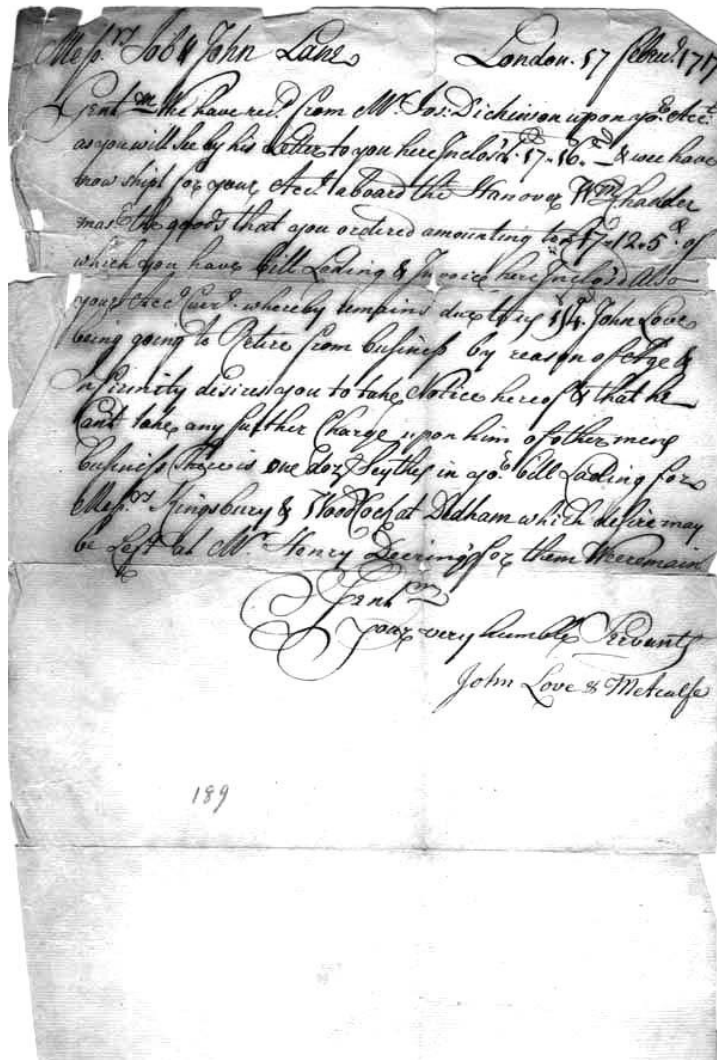 Mess.rs Job & John Lane London. 17 febru.r 1717
Gent.m We have rec.d from M.r Jos: Dickinson upon yo.r Acc.t
as you will see by his Letter to you here Inclos'd. 17.. 16.. & wee have
now shipt for your Acc.t aboard the Hanover W.m
mas.r the goods that you ordered amounting to 17..12..5 of
which you have bill Lading & Invoice here Inclos'd Also
your Acc.t Curr.t whereby remains due to us John Love
being going to Retire from business by reason of Age &
Infirmity desires you to take Notice hereof & that he
Cant take any further Charge upon him of other mens
business There is one doz Scythes in yo.r bill Lading for
Mess.rs Kingsbury & Woodcock at Dedham which desire may
be Left at M.r Henry Deering's for them Wee remain
Gent.m
Your very humble Servants
John Love & Metcalfe
189